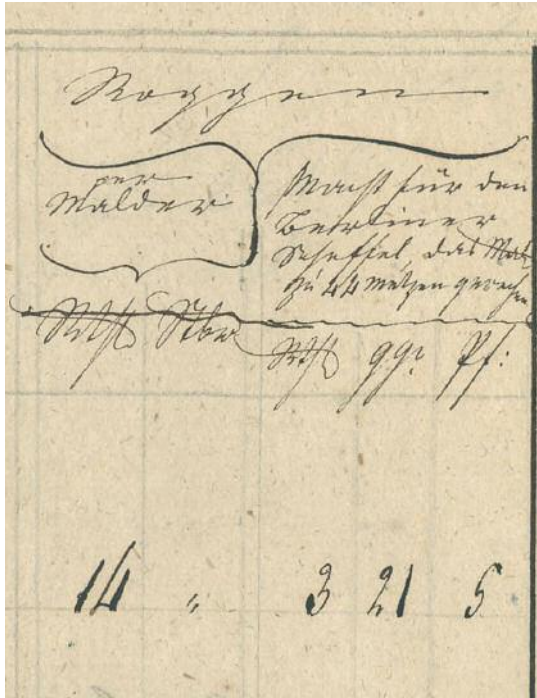 Roggen
per
Malder
Macht für den
Berliner
Scheffel, das Mal
zu 44 Metzen gerechn
Rthl Stbr
Rthl ggr Pf:
14 " 3 21 5